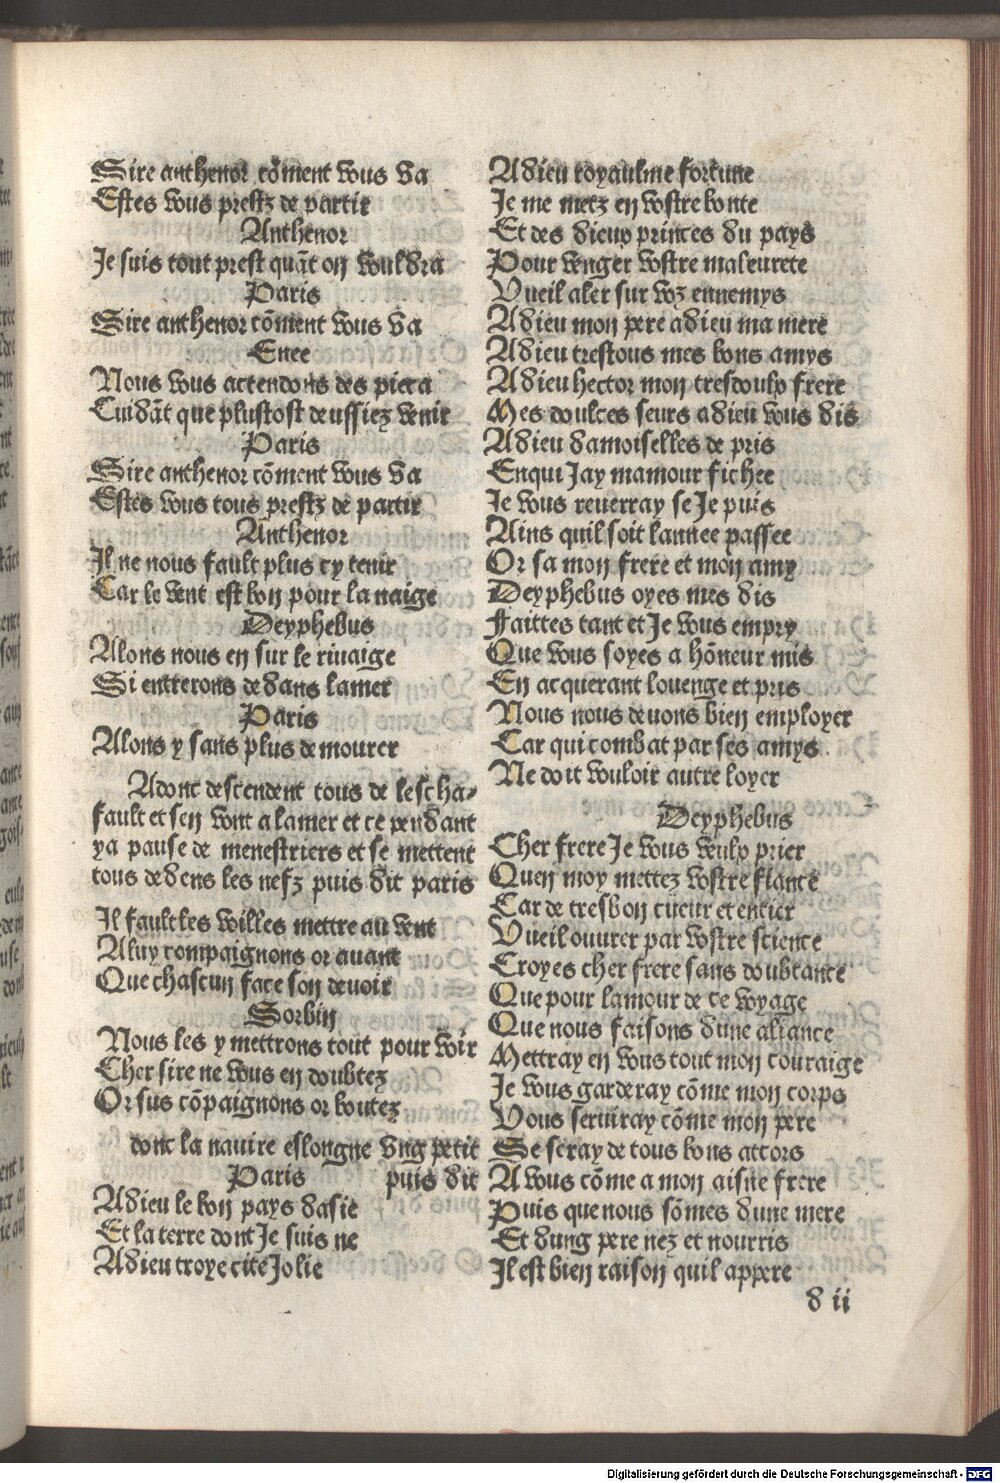 Sire anthenor cõment vous va
Estes vous prestz de partir
Anthenor
Je suis tout prest quãt on vouldra
Paris
Sire anthenor cõment vous va
Enee
Nous vous actendons des pieca
Cuidãt que plustost deussiez venir
Paris
Sire anthenor cõment vous va
Estes vous tous prestz de partir
Anthenor
Il ne nous fault plus cy tenir
Car le vent est bon pour la naige
Deyphebus
Alons nous en sur le riuaige
Si entrerons dedans lamer
Paris
Alons y sans plus demourer
Adonc descendent tous de lescha-
fault et sen vont a lamer et ce pendant
ya pause de menestriers et se mettent
tous dedens les nefz puis dit paris
Il fault les voilles mettre au vent
A luy compaignons or auant
Que chascun face son deuoir
Sorbin
Nous les y mettrons tout pour voir
Cher sire ne vous en doubtez
Or sus cõpaignons or boutez
donc la nauire eslongne vng petit
Paris puis dit
Adieu le bon pays dasie
Et la terre dont Je suis ne
Adieu troye cite Jolie
Adieu royaulme fortune
Je me metz en vostre bonte
Et des dieux princes du pays
Pour venger vostre maleurete
Vueil aler sur voz ennemys
Adieu mon pere adieu ma mere
Adieu trestous mes bons amys
Adieu hector mon tresdoulx frere
Mes doulces seurs adieu vous dis
Adieu damoiselles de pris
En qui Jay mamour fichee
Je vous reuerray se Je puis
Ains quil soit lannee passee
Or sa mon frere et mon amy
Deyphebus oyes mes dis
Faittes tant et Je vous empry
Que vous soyes a hõneur mis
En acquerant louenge et pris
Nous nous deuons bien employer
Car qui combat par ses amys
Ne doit vouloir autre loyer
Deyphebus
Cher frere Je vous veulx prier
Quen moy mettez vostre fiance
Car de tresbon cueur et entier
Vueil ouurer par vostre science
Croyes cher frere sans doubtance
Que pour lamour de ce voyage
Que nous faisons dune aliance
Mettray en vous tout mon couraige
Je vous garderay cõme mon corps
Vous seruiray cõme mon pere
Se seray de tous bons accors
A vous cõme a mon aisne frere
Puis que nous sõmes dune mere
Et dung pere nez et nourris
Il est bien raison quil appere
d ii
Digitalisierung gefördert durch die Deutsche Forschungsgemeinschaft - DFG